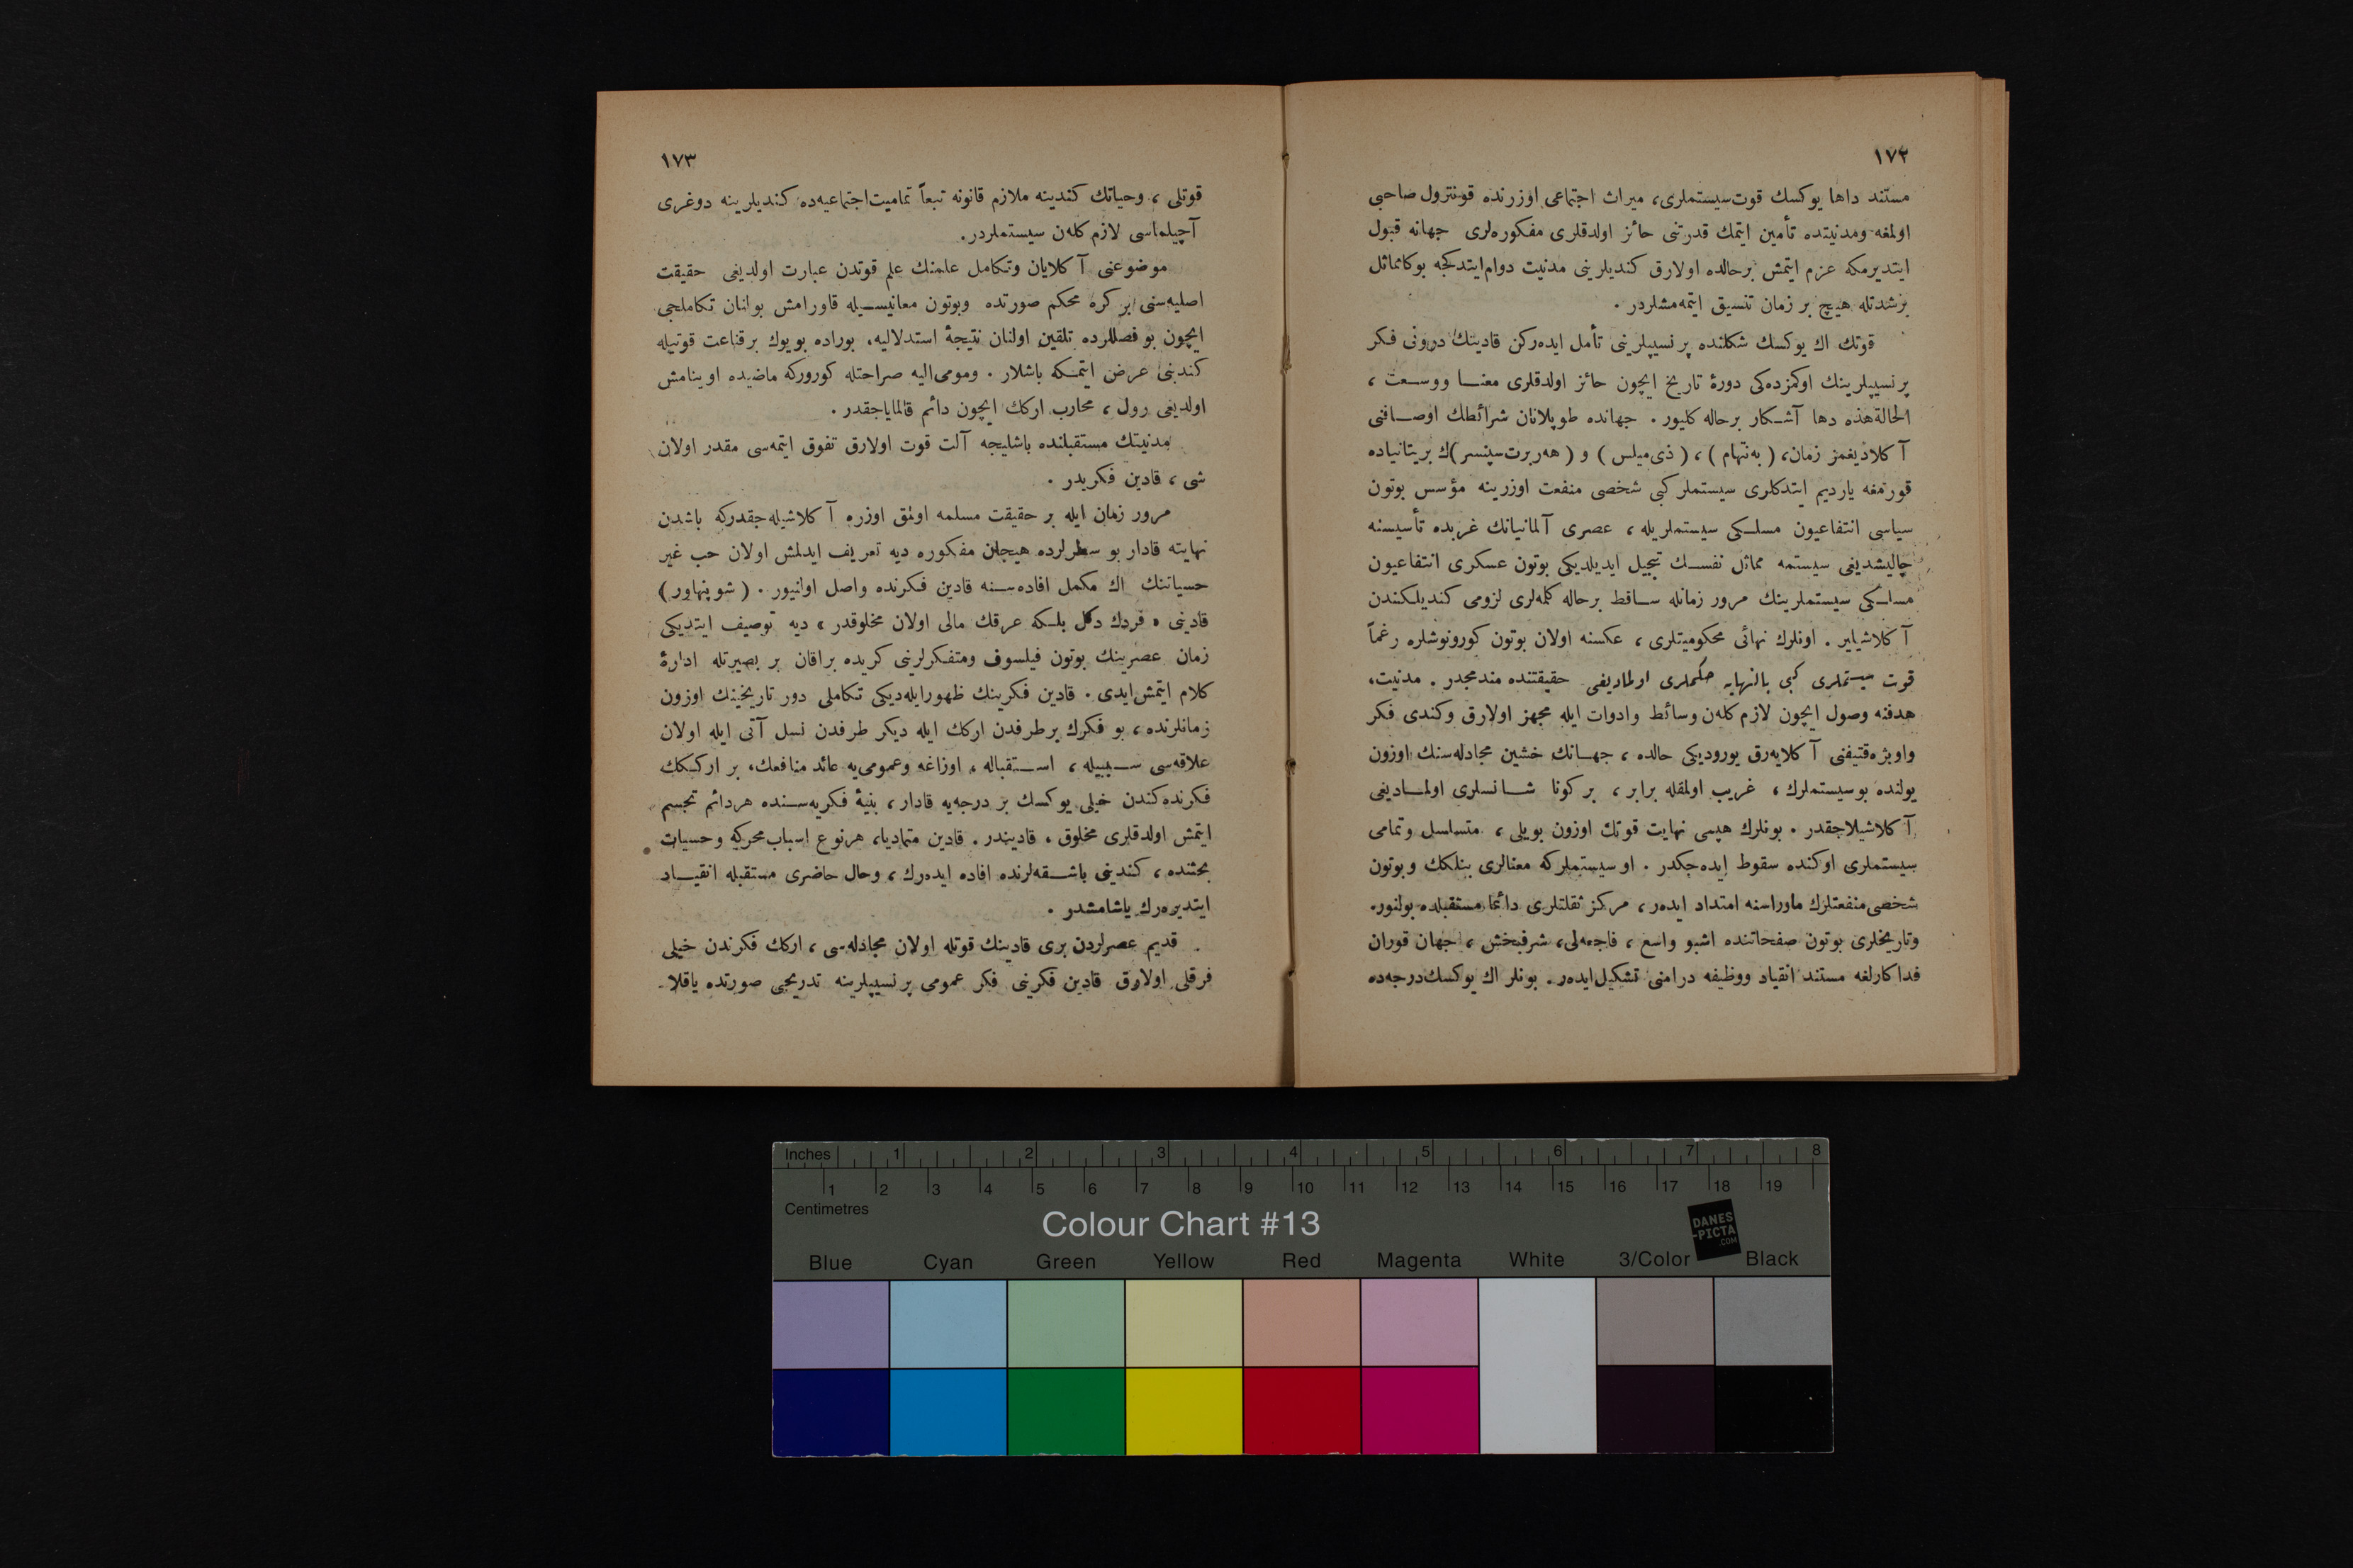 ١٧٢
مستند داها يوكسك قوت‌سيستملری، ميراث اجتماعی اوزرنده قونترول صاحبی
اولمغه ومدنيتده تأمين ايتمك قدرتنی حائز اولدقلری مفكوره‌لری جهانه قبول
ايتديرمكه عزم ايتمش برحالده اولارق كنديلرينی مدنيت دوام‌ايتدكجه بوكامماثل
برشدتله هيچ بر زمان تنسيق ايتمه‌مشلردر .
قوتك اك يوكسك شكلنده پرنسيپلرينی تأمل ايده‌ركن قادينك درونی فكر
پرنسيپلرينك اوكمزده‌كی دورهٔ تاريخ ايچون حائز اولدقلری معنا ووسعت ،
الحالةهذه دها آشكار برحاله كليور . جهانده طوپلانان شرائطك اوصافنی
آكلاديغمز زمان، ( به‌نتهام ) ، ( ذی‌ميلس ) و ( هه‌ربرت‌سپنسر )ك بريتانياده
قورمغه يارديم ايتدكلری سيستملر كبی شخصی منفعت اوزرينه مؤسس بوتون
سياسی انتفاعيون مسلكی سيستملريله ، عصری آلمانيانك غربده تأسيسنه
چاليشديغی سيستمه مماثل نفسك تبجيل ايديلديكی بوتون عسكری انتفاعيون
مسلكی سيستملرينك مرور زمانله ساقط برحاله كلمه‌لری لزومی كنديلكندن
آكلاشيلير . اونلرك نهائی محكوميتلری ، عكسنه اولان بوتون كورونوشلره رغماً
قوت سيستملری كبی بالنهايه حكملری اولماديغی حقيقتنده مندمجدر . مدنيت،
هدفنه وصول ايچون لازم كله‌ن وسائط وادوات ايله مجهز اولارق وكندی فكر
واوبژه‌قتيفنی آكلايه‌رق يوروديكی حالده ، جهانك خشين مجادله‌سنك اوزون
يولنده بوسيستملرك ، غريب اولمقله برابر ، بركونا شانسلری اولماديغی
آكلاشيلاجقدر . بونلرك هپسی نهايت قوتك اوزون بويلی ، متسلسل وتمامی
سيستملری اوكنده سقوط ايده‌جكدر . او سيستملركه معنالری بنلكك وبوتون
شخصی‌منفعتلرك ماوراسنه امتداد ايده‌ر، مركز ثقلتلری دائما مستقبلده بولنور.
وتاريخلری بوتون صفحاتنده اشبو واسع ، فاجعه‌لی، شرفبخش ، جهان قوران
فداكارلغه مستند انقياد ووظيفه درامنی تشكيل‌ايده‌ر. بونلر اك يوكسك‌درجه‌ده
١٧٣
قوتلی ، وحياتك كندينه ملازم قانونه تبعاً تماميت‌اجتماعيه‌ده كنديلرينه دوغری
آچيلماسی لازم كله‌ن سيستملردر.
موضوعنی آكلايان وتكامل علمنك علم قوتدن عبارت اولديغی حقيقت
اصليه‌سنی بركره محكم صورتده وبوتون معانيسيله قاورامش بولنان تكاملجی
ايچون بو فصللرده تلقين اولنان نتيجهٔ استدلاليه، بوراده بويوك برقناعت قوتيله
كندينی عرض ايتمكه باشلار . ومومی‌اليه صراحتله كوروركه ماضيده اوينامش
اولديغی رول ، محارب اركك ايچون دائم قالماياجقدر .
مدنيتك مستقبلنده باشليجه آلت قوت اولارق تفوق ايتمه‌سی مقدر اولان
شی ، قادين فكريدر .
مرور زمان ايله بر حقيقت مسلمه اولمق اوزره آكلاشيله‌جقدركه باشدن
نهايته قادار بو سطرلرده هيجان مفكوره ديه تعريف ايدلمش اولان حب غير
حسياتنك اك مكمل افاده‌سنه قادين فكرنده واصل اولنيور . ( شوپنهاور )
قادينی « فردك دكل بلكه عرقك مالی اولان مخلوقدر » ديه توصيف ايتديكی
زمان عصرينك بوتون فيلسوف ومتفكرلرنی كريده براقان بر بصيرتله ادارهٔ
كلام ايتمش‌ايدی . قادين فكرينك ظهورايله‌ديكی تكاملی دور تاريخينك اوزون
زمانلرنده ، بو فكرك برطرفدن اركك ايله ديكر طرفدن نسل آتی ايله اولان
علاقه‌سی سببيله ، استقباله ، اوزاغه وعمومی‌يه عائد منافعك، بر اركككك
فكرنده‌كندن خيلی يوكسك بر درجه‌يه قادار ، بنيهٔ فكريه‌سنده هردائم تجسم
ايتمش اولدقلری مخلوق ، قاديندر . قادين متماديا، هرنوع اسباب‌محركه وحسيات
بحثنده ، كندينی باشقه‌لرنده افاده ايده‌رك ، وحال حاضری مستقبله انقياد
ايتديره‌رك ياشامشدر .
قديم عصرلردن بری قادينك قوتله اولان مجادله‌سی ، اركك فكرندن خيلی
فرقلی اولارق قادين فكرينی فكر عمومی پرنسيپلرينه تدريجی صورتده ياقلا-
Inches 1 2 3 4 5 6 7 8
1 2 3 4 5 6 7 8 9 10 11 12 13 14 15 16 17 18 19
Centimetres
Colour Chart #13
DANES
-PICTA
.COM
Blue Cyan Green Yellow Red Magenta White 3/Color Black